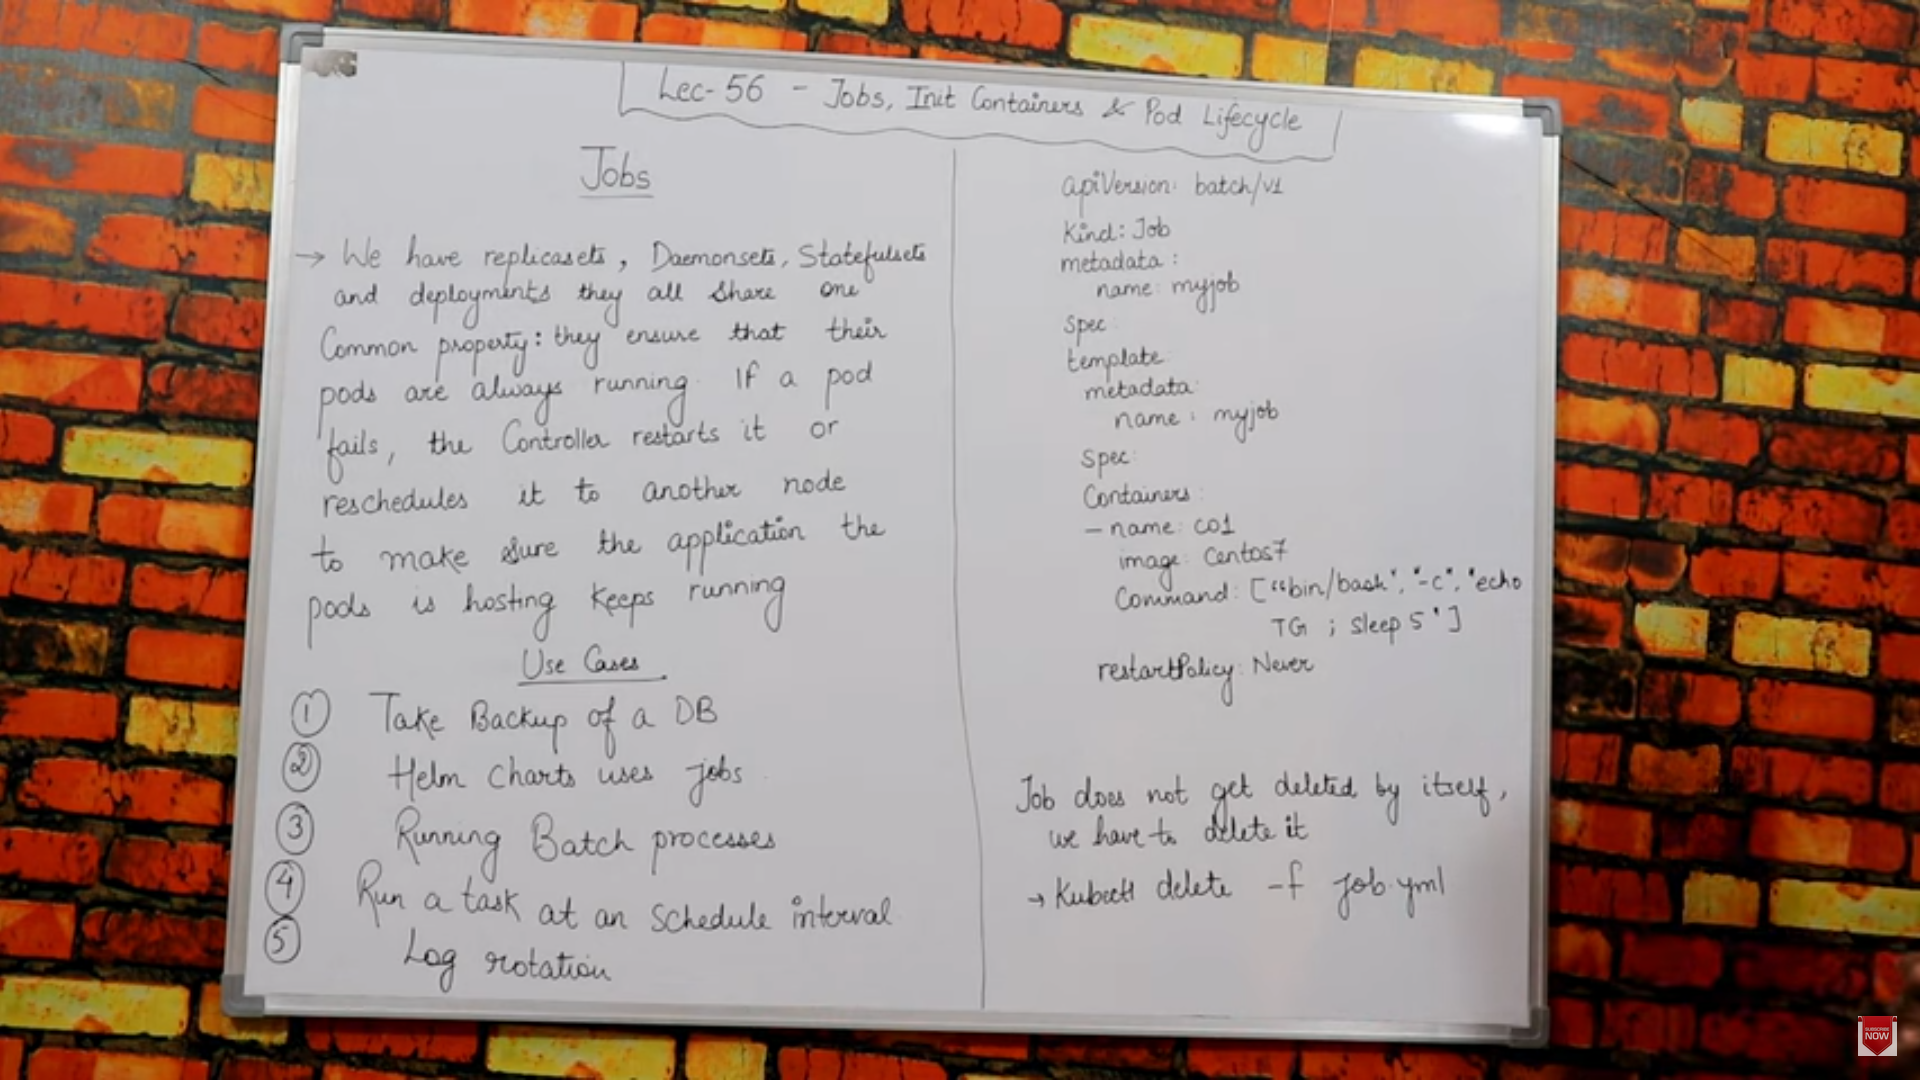 Lec-56 - Jobs, Init Containers & Pod Lifecycle
Jobs
→ We have replicasets, Daemonsets, Statefulsets
and deployments they all share one
Common property: they ensure that their
pods are always running. If a pod
fails, the Controller restarts it or
reschedules it to another node
to make sure the application the
pods is hosting keeps running
Use Cases
1 Take Backup of a DB
2 Helm Charts uses jobs
3 Running Batch processes
4 Run a task at an schedule interval
5 Log rotation
apiVersion: batch/v1
Kind: Job
metadata:
name: myjob
Spec:
template:
metadata:
name: myjob
Spec:
Containers:
- name: C01
image: Centos7
Command: ["bin/bash", "-c", "echo
TG ; Sleep 5"]
restartPolicy: Never
Job does not get deleted by itself,
we have to delete it
→ Kubectl delete -f job.yml
SUBSCRIBE
NOW